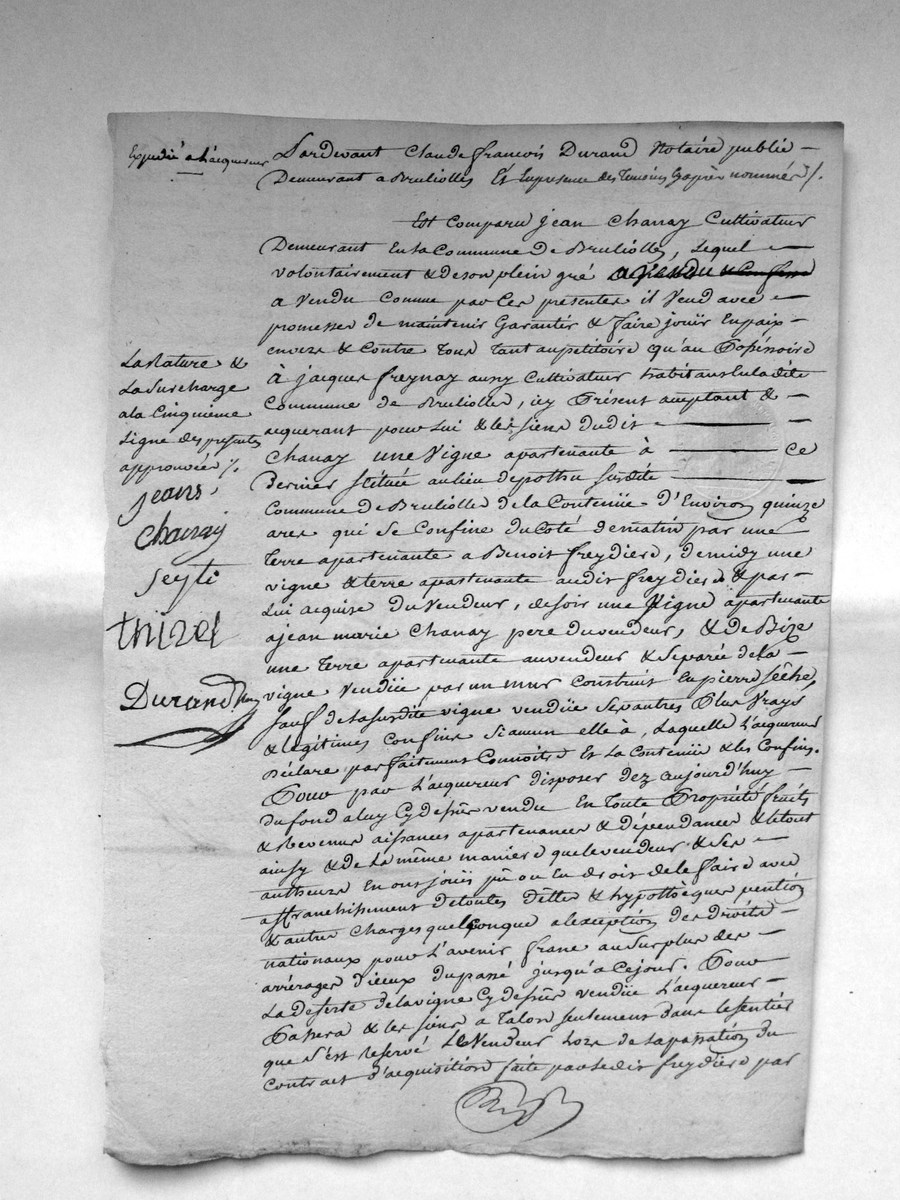 Expedié a L'acquereur
Pardevant Claude françois Durand Notaire public
Demeurant a Brullolles Et En presence des temoins Cy après nommés /.
Est Comparu jean Chanay Cultivateur
Demeurant En la Commune de Brullolles, Lequel
volontairement & de son plein gré a vendu & Confine
a vendu Comme par Ces presentes il vend avec
promesses de maintenir Garantir & faire jouir En paix
envers & Contre tous tant au petitoire qu'au Possessoire
à jacques freynay aussy Cultivateur habitant En la dite
Commune de Brullolles, icy Présent acceptant &
acquerant pour Lui & les siens dudit
Chanay une vigne apartenante à ce
Dernier Scituée au lieu de pothu susdite
Commune de Brullolles de la Contenüe d'Environ quinze
ares qui se Confine du Coté de matin par une
terre apartenante a Benoit freydiere, de midy une
vigne & terre apartenante audit freydiere & par
Lui acquise du vendeur, de soir une vigne apartenante
a jean marie Chanay pere du vendeur, & de Bize
une terre apartenante au vendeur & separée de la
vigne vendüe par un mur Construit En pierre sêche,
Sauf de la susdite vigne vendüe ses autres Plus vrays
& legitimes Confins si aucun elle à, Laquelle L'acquereur
Déclare parfaitement Connoitre Et la Contenüe & les Confins.
Pour par L'acquereur disposer dez aujourd'huy
du fond a luy Cy dessus vendu En toute Propriété fruits
& Revenus aissances apartenances & dépendances & le tout
ainsy & de la même maniere que le vendeur & ses
autheurs En ont joüis pû ou En droit de le faire avec
affranchissement de toutes dettes & hypottheques pention
& autres Charges quelconque a l'exception des droits
nationaux pour L'avenir franc au surplus des
arrérages d'iceux du passé jusqu'a Cejour. Pour
La desserte de la vigne Cy dessus vendüe L'acquereur
Passera & les siens a Talon seulement dans le sentier
que s'est reservé Le Vendeur Lors de la passation du
Contract d'acquisition faite par le dit freydiere par
La Rature &
La Surcharge
a la Cinquieme
Ligne des presentes
approuvées /.
jeans
chanay
seyti
thizel
Durand